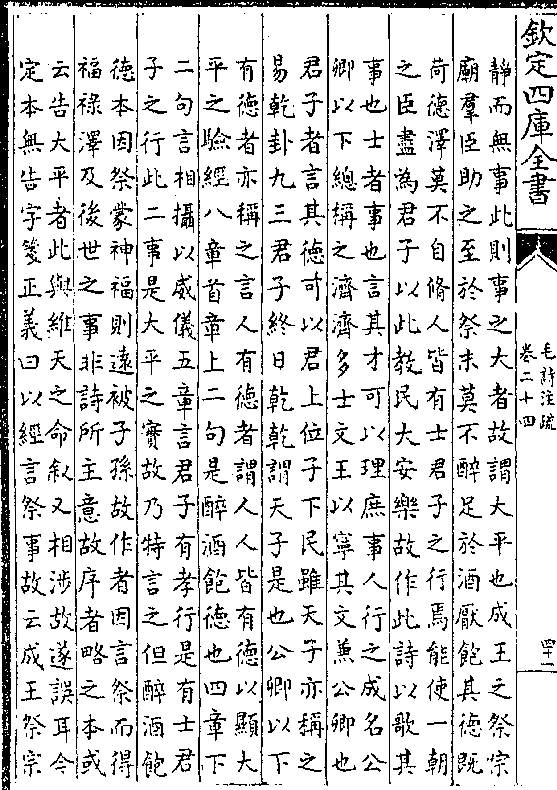 欽定四庫全書
毛詩注疏
卷二十四
四十一
靜而無事此則事之大者故謂大平也成王之祭宗
廟羣臣助之至於祭末莫不醉足於酒厭飽其德既
荷德澤莫不自脩人皆有士君子之行焉能使一朝
之臣盡為君子以此教民大安樂故作此詩以歌其
事也士者事也言其才可以理庶事人行之成名公
卿以下總稱之濟濟多士文王以寧其文兼公卿也
君子者言其德可以君上位子下民雖天子亦稱之
易乾卦九三君子終日乾乾謂天子是也公卿以下
有德者亦稱之言人有德者謂人人皆有德以顯大
平之驗經八章首章上二句是醉酒飽德也四章下
二句言相攝以威儀五章言君子有孝行是有士君
子之行此二事是大平之實故乃特言之但醉酒飽
德本因祭蒙神福則遠被子孫故作者因言祭而得
福祿澤及後世之事非詩所主意故序者略之本或
云告大平者此與維天之命叙又相涉故遂誤耳今
定本無告字箋正義曰以經言祭事故云成王祭宗